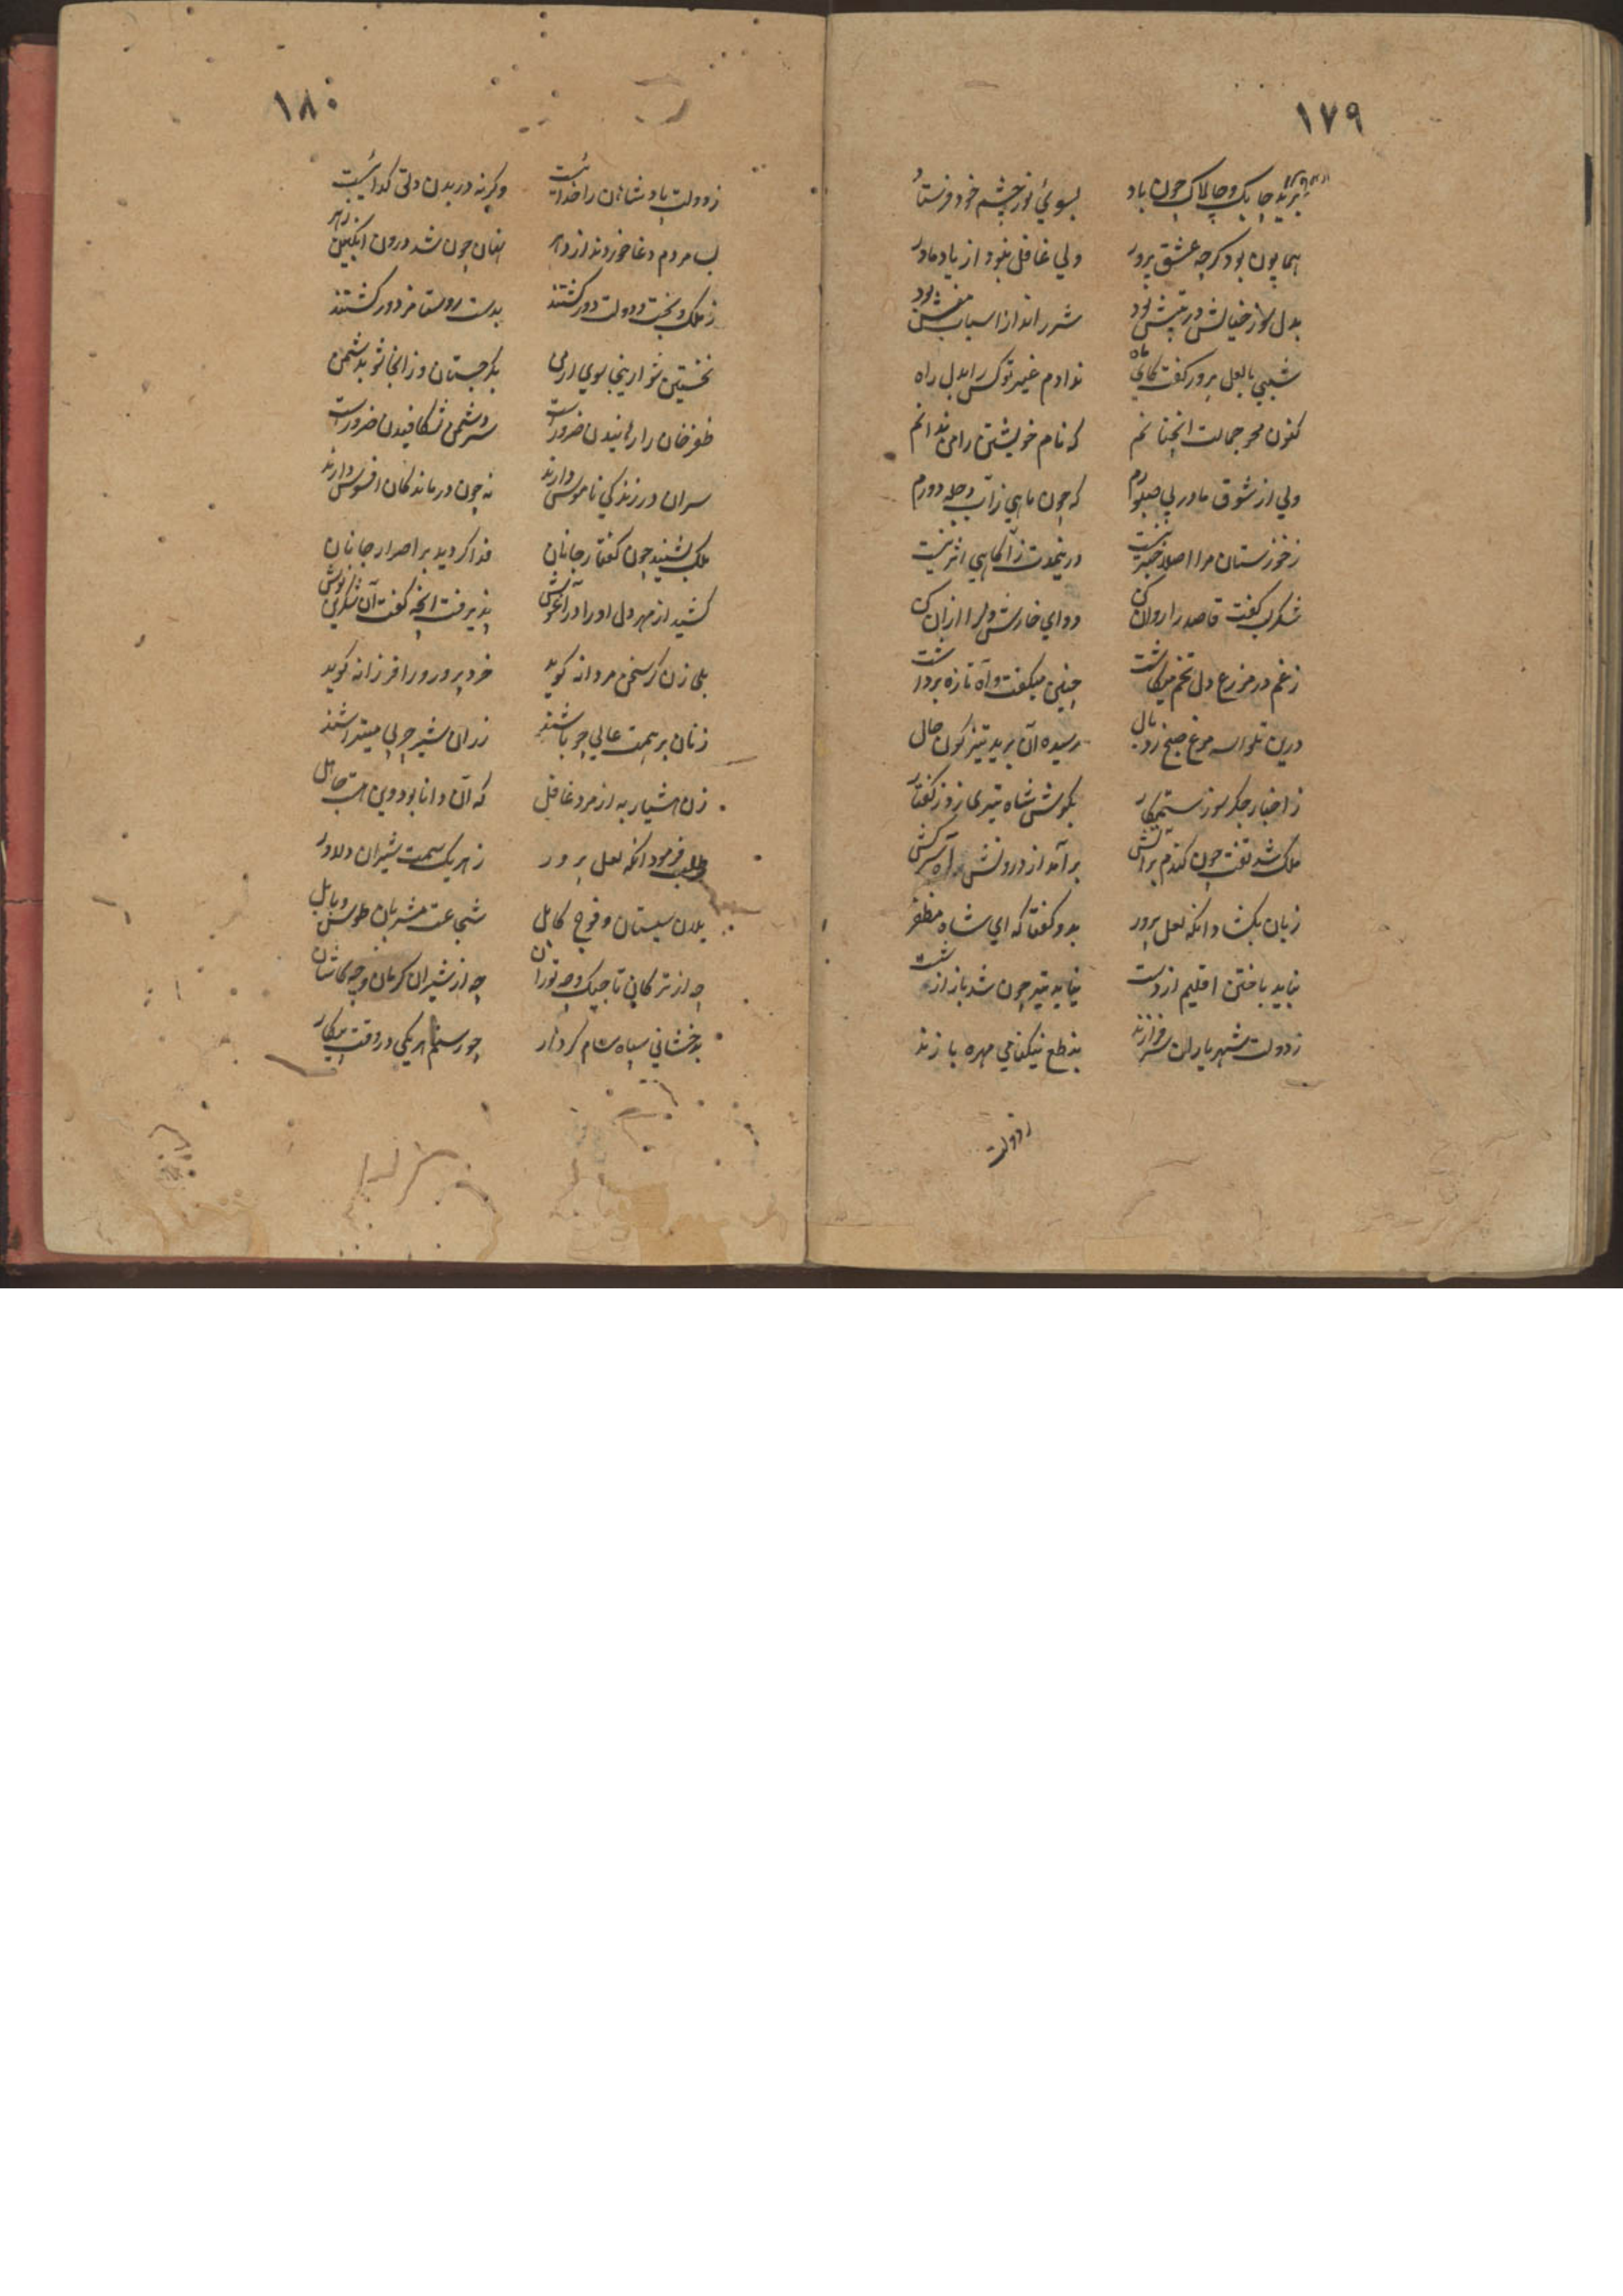 ١٧٩
برید چابک و چالاک چون باد بسوئ نور چشم خود فرستاد
همایون بود کرچه عشق پرور ولی غافل نبود از یاد مادر
بدل سوز خیالش در تپش بود شرر انداز اسباب
شبی بالعل پرور کفت کای ماه ندادم غیر تو کس را بدل راه
کنون محو جمالت انچنانم که نام خویشتن را می ندانم
ولی از شوق مادر بی صبورم که چون ماهی ز آب دجله دورم
ز خوزستان مرا اصلا خبر نیست درینمدت ز آکاهی اثر نیست
شکر لب کفت قاصد را روان کن دوای خارش دل را ازان کن
ز غم در مزرع دل تخم میکاشت چنین میکفت و آه تازه برداشت
درین تلواسه مرغ صبح زد بال رسیده آن برید تیز کون حال
ز اخبار جکر سوز ستمکار بکوشش شاه تیری زد ز کفتار
ملک شد تفت چون کندم بر آتش بر آمد از درونش آه سرکش
زبان بکشاد انکه لعل پرور بدو کفتا که ای شاه مظفر
نباید باختن اقلیم از دست نیاید تیر چون شد باز از شست
ز دولت شهریاران سرفرازند بنطع نیکنامی مهره بازند
ز دولت
١٨٠
ز دولت پادشاهان را خدائیست وکرنه در بدن دلق کدائیست
بسا مردم دغا خوردند از دهر نهان چون شد درون انکبین زهر
ز ملک و بخت و دولت دور کشتند بدست روستا مزدور کشتند
نخستین شو ازینجا سوی ارمن بکرجستان وز انجا شو بدشمن
ظفرخان را رهانیدن ضرورست سر دشمن شکافیدن ضرورست
سران در زندکی ناموس دارند نه چون درماندکان افسوس دارند
ملک بشنید چون کفتار جانان فدا کردید بر اصرار جانان
کشید از مهر دل او را در آغوش پذیرفت انچه کفت آن شکرین نوش
بلی زن کر سخن مردانه کوید خرد پرور ورا فرزانه کوید
زنان بر همت عالی چو باشند ز ران شیر چربی میتراشند
زن هشیار به از مرد غافل که آن دانا بود وین هست جاهل
طلب فرمود انکه لعل پرور ز هر یک سمت شیران دلاور
یلان سیستان و فوج کابل شجاعت مشربان طوس و بابل
چه از ترکان تاجیک و چه توران چه از شیران کرمان و چه کاشان
بدخشانی سپاه سام کردار چو رستم هر یکی در وقت پیکار